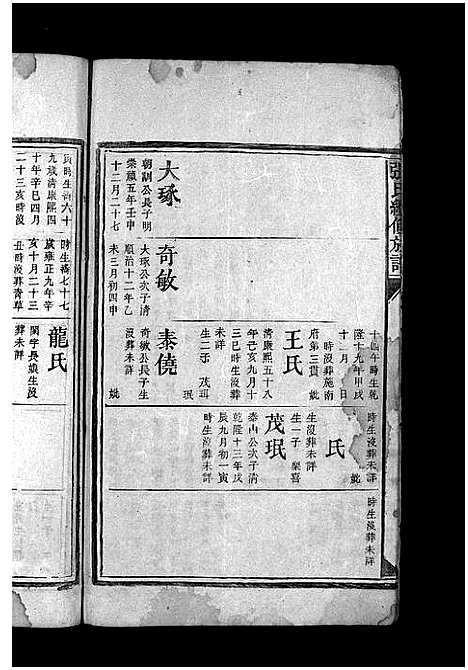 張氏續修族譜
大琢
朝訓公長子明
崇禎五年壬申
十二月二十七
奇敏
大琢公次子清
順治十二年乙
未三月初四申
十四午時生乾
隆十九年甲戌
十 月 日
時沒葬施南
府第三貫 妣
王氏
清康熙五十八
年己亥九月十
三巳時生沒葬
未詳
生二子 茂珥
珉
泰僥
奇敏公長子生
沒葬未詳 妣
時生沒葬未詳
妣
氏
生沒葬未詳
生一子 榮喜
茂珉
泰山公次子清
乾隆十三年戊
辰九月初一寅
時生沒葬未詳
時生沒葬未詳
九
十年辛巳四月
二十三亥時沒
時生清七十七
歲雍正九年辛
亥十月二十三
丑時沒葬青草
龍氏
閨字長娘生沒
葬未詳